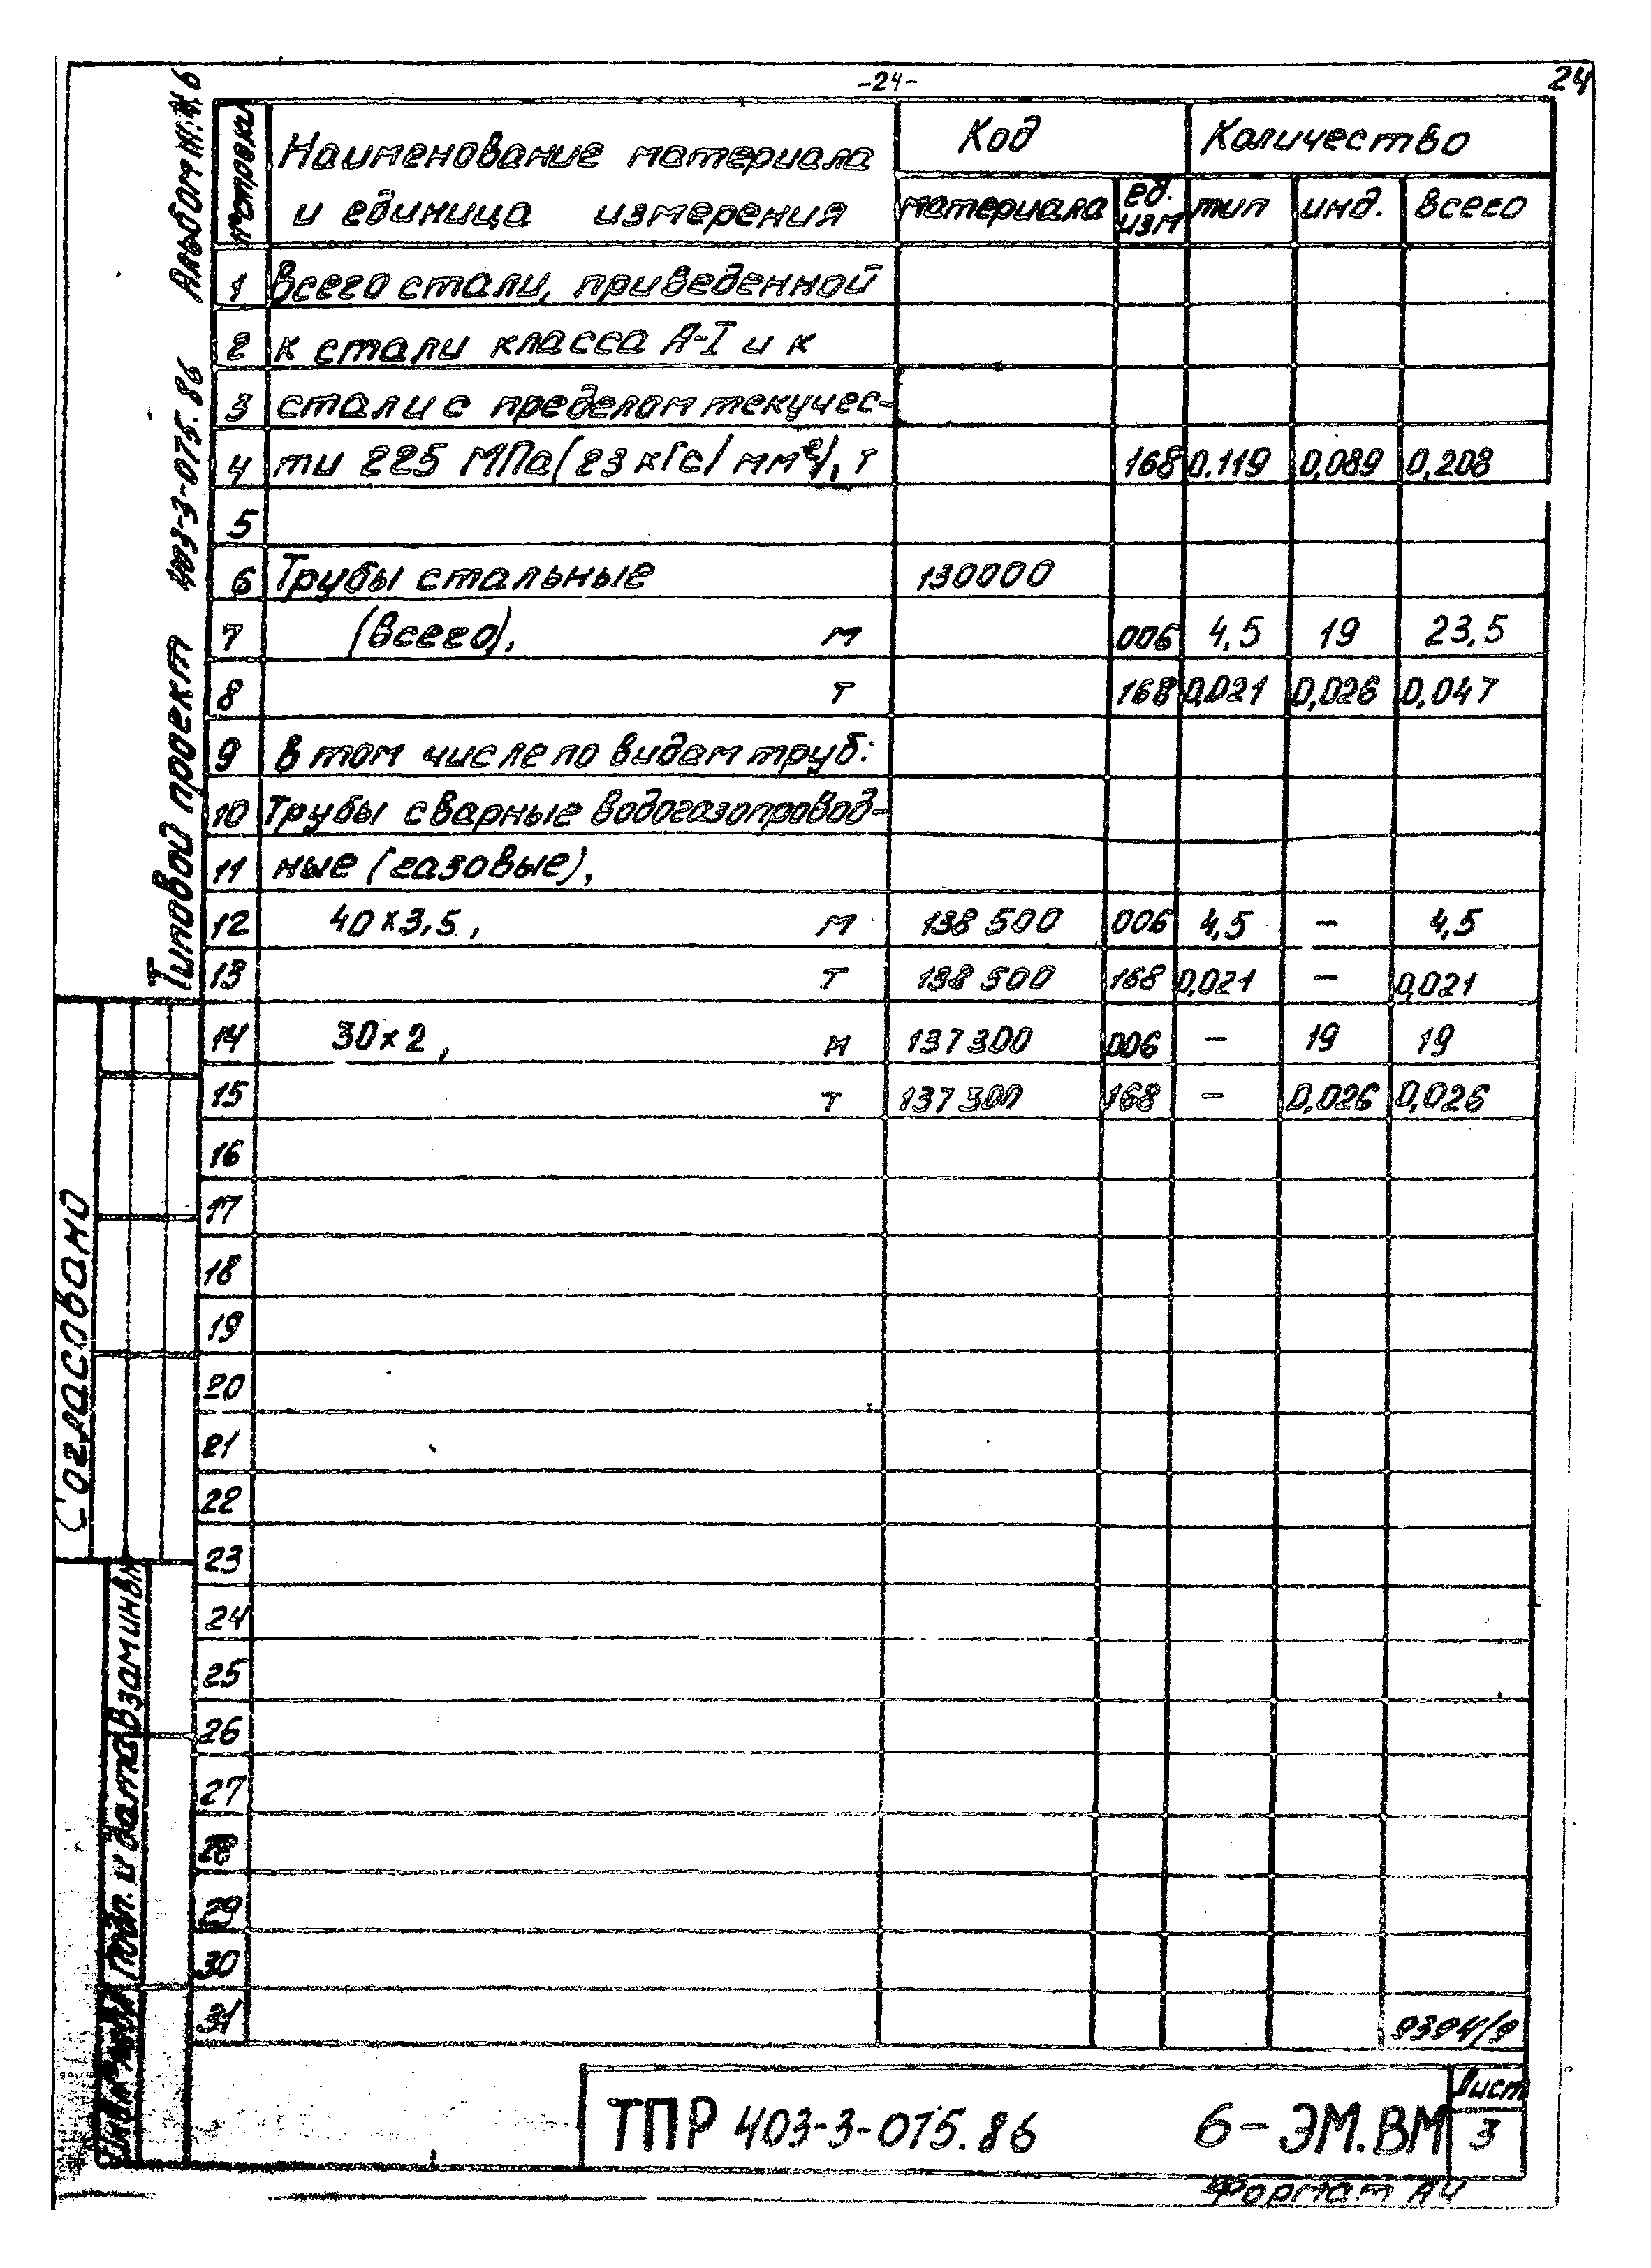 -24-
24
Альбом III.Ч.6
Типовой проект 403-3-075.86
№ строки
Наименование материала
и единица измерения
Код
Количество
материала
ед.
изм
тип
инд.
всего
1 Всего стали, приведенной
2 к стали класса А-I и к
3 стали с пределом текучес-
4 ти 225 МПа(23 кГс/мм²), т 168 0.119 0,089 0,208
5
6 Трубы стальные 130000
7 (всего), м 006 4,5 19 23,5
8 т 168 0,021 0,026 0,047
9 в том числе по видам труб:
10 Трубы сварные водогазопровод-
11 ные (газовые),
12 40x3,5, м 138 500 006 4,5 - 4,5
13 т 138 500 168 0,021 - 0,021
14 30x2, м 137300 006 - 19 19
15 т 137300 168 - 0,026 0,026
16
17
18
19
20
21
22
23
24
25
26
27
28
29
30
31
9394/9
Согласовано
Взам инв №
Подп. и дата
ТПР 403-3-075.86 6-ЭМ.ВМ
Лист
3
Формат А4